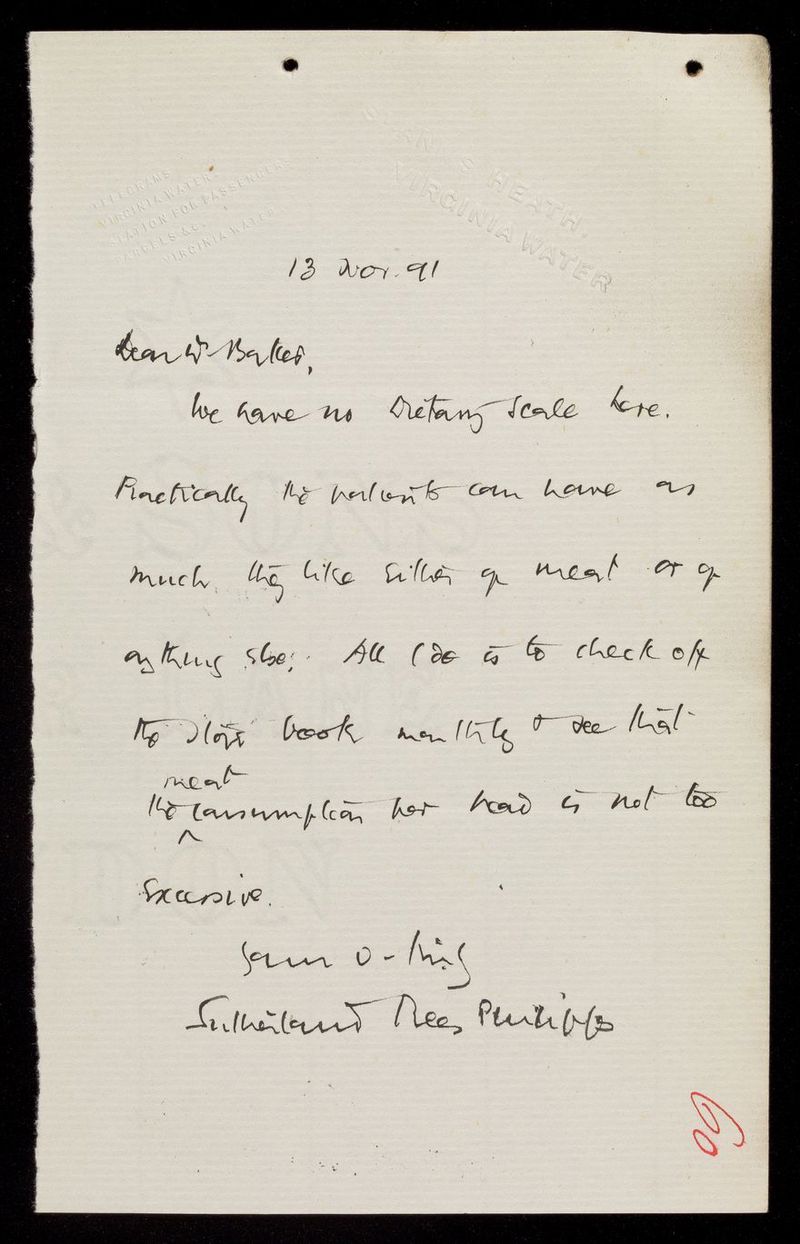 TELEGRAMS
VIRGINIA WATER.
STATION FOR PASSENGERS
PARCELS &c.
VIRGINIA WATER
HEATH.
VIRGINIA WATER
13 Nov. 91
Dear Dr Baker,
We have no Dietary Scale here.
Practically the patients can have as
much they like either of meat or of
anything else. All I do is to check off
the Store book monthly & see that
meat
the consumption per head is not too
excessive.
Sutherland Rees Philipps
60